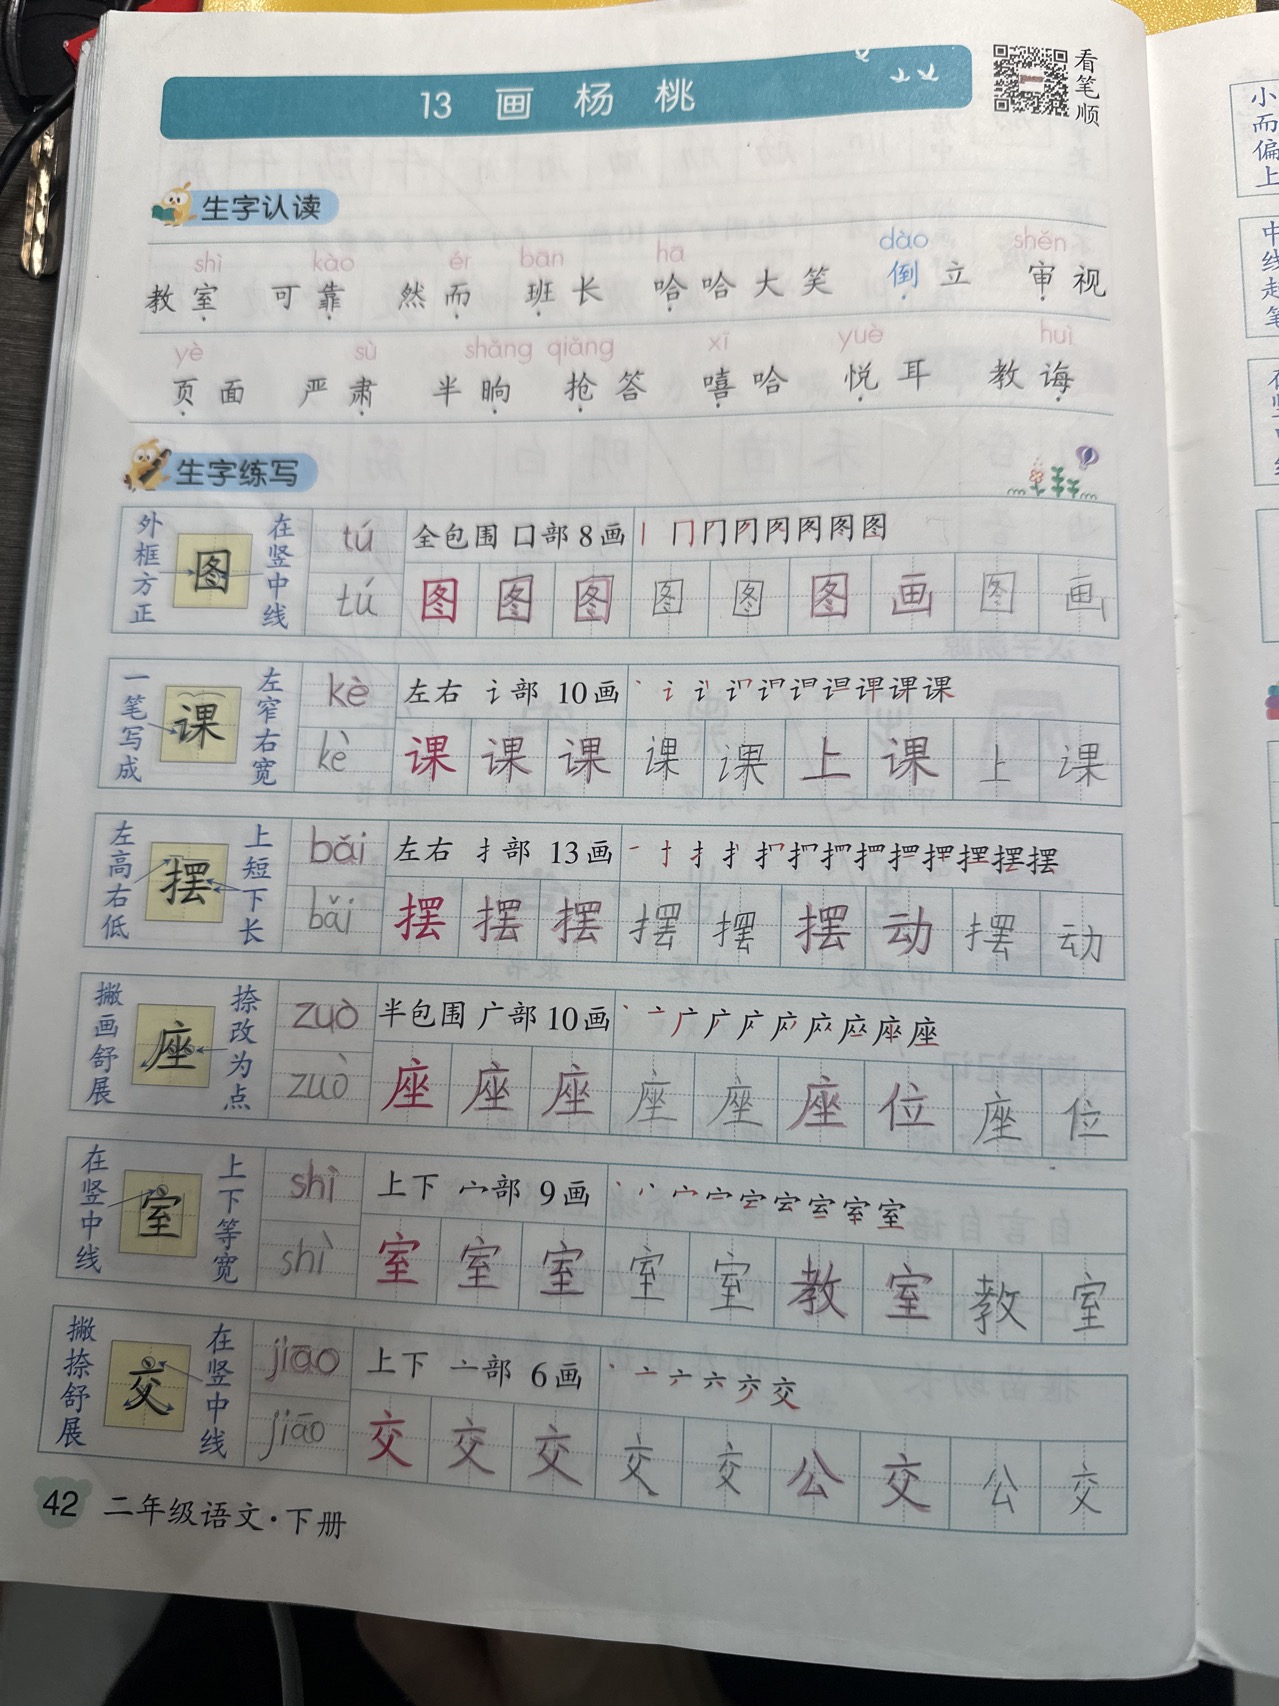 13 画杨桃
看笔顺
生字认读
shì kào ér bān hā dào shěn
教室 可靠 然而 班长 哈哈大笑 倒立 审视
yè sù shǎng qiǎng xī yuè huì
页面 严肃 半晌 抢答 嘻哈 悦耳 教诲
生字练写
外框方正 图 在竖中线 tú 全包围 囗部 8画 丨 冂 冂 冈 图 图
tú 图 图 图 图 图 图 画 图 画
一笔写成 课 左窄右宽 kè 左右 讠部 10画 课
kè 课 课 课 课 课 上 课 上 课
左高右低 摆 上短下长 bǎi 左右 扌部 13画 一 扌 摆 摆
bǎi 摆 摆 摆 摆 摆 摆 动 摆 动
撇画舒展 座 捺改为点 zuò 半包围 广部 10画 丶 亠 广 座 座
zuò 座 座 座 座 座 座 位 座 位
在竖中线 室 上下等宽 shì 上下 宀部 9画 丶 宀 室
shì 室 室 室 室 室 教 室 教 室
撇捺舒展 交 在竖中线 jiāo 上下 亠部 6画 丶 亠 六 交
jiāo 交 交 交 交 交 公 交 公 交
42 二年级语文·下册
小而偏上